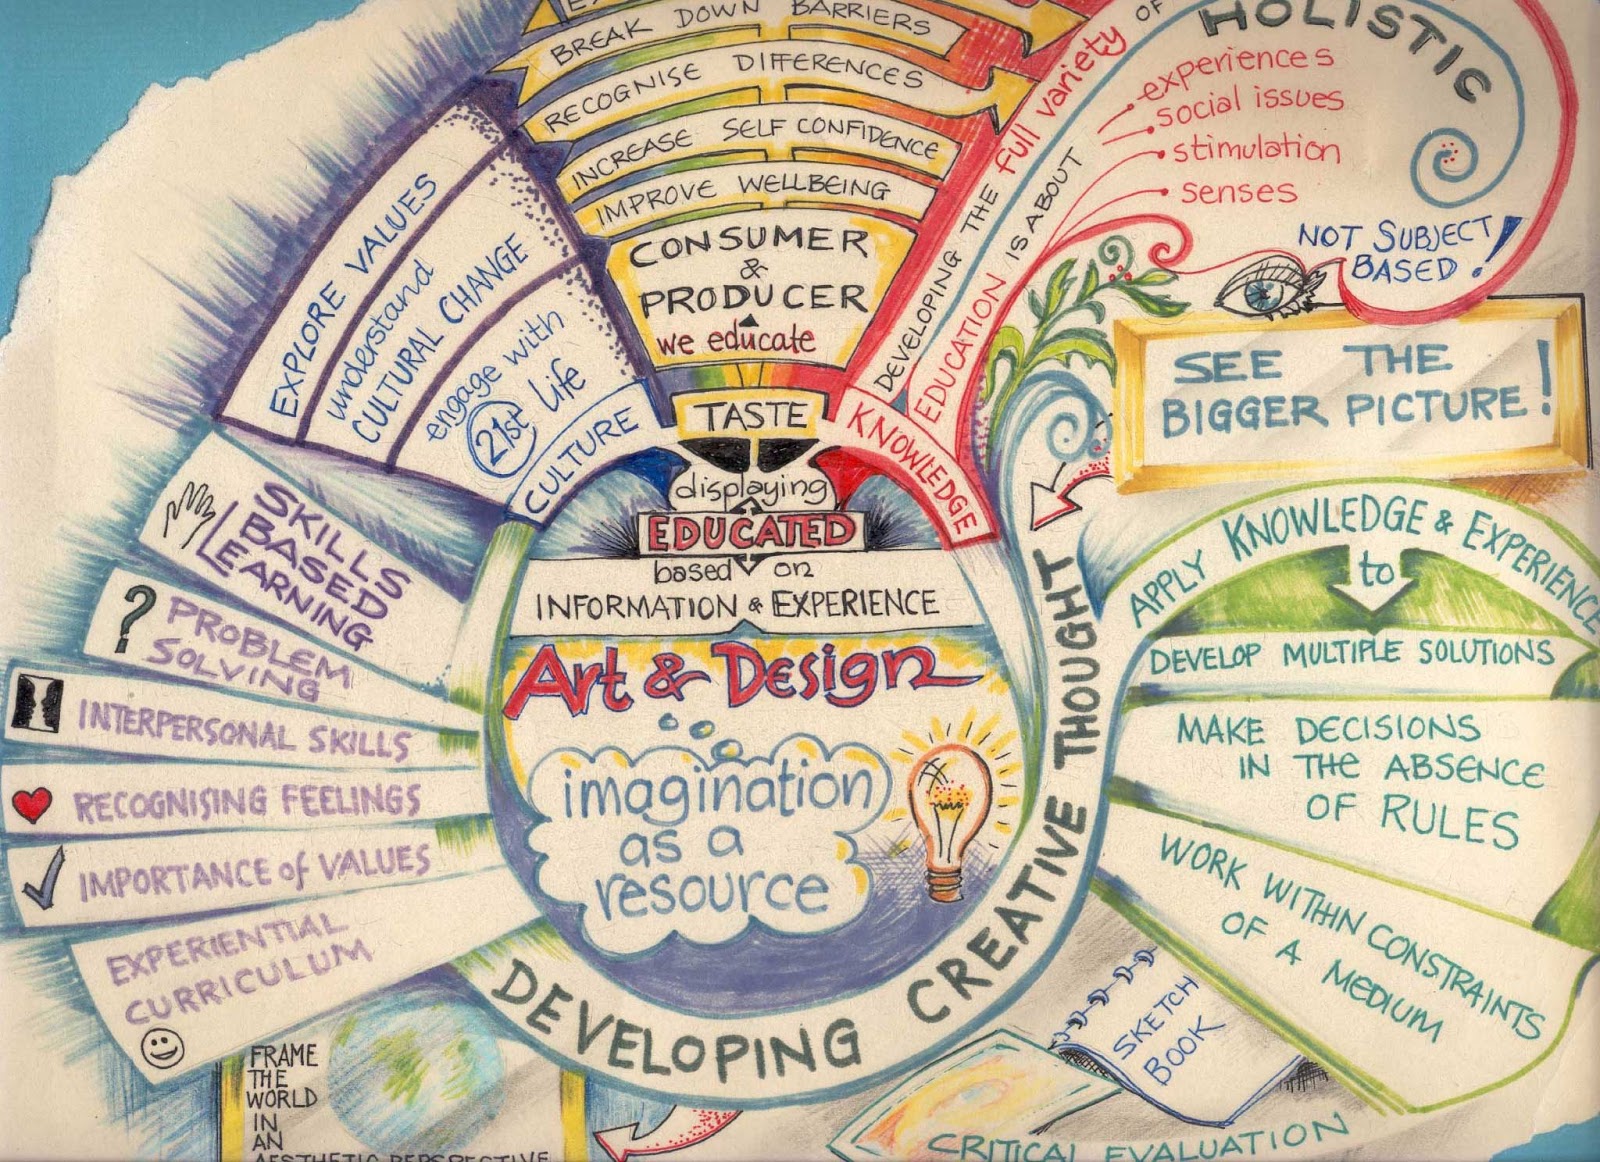 BREAK DOWN BARRIERS
RECOGNISE DIFFERENCES
INCREASE SELF CONFIDENCE
IMPROVE WELLBEING
CONSUMER
&
PRODUCER
we educate
TASTE
displaying
EDUCATED
based on
INFORMATION & EXPERIENCE
Art & Design
imagination
as a
resource
DEVELOPING CREATIVE THOUGHT
CULTURE
EXPLORE VALUES
understand
CULTURAL CHANGE
engage with
21st Life
KNOWLEDGE
DEVELOPING THE full variety OF
EDUCATION IS ABOUT
HOLISTIC
experiences
social issues
stimulation
senses
NOT SUBJECT
BASED!
SEE THE
BIGGER PICTURE!
APPLY KNOWLEDGE & EXPERIENCE
to
DEVELOP MULTIPLE SOLUTIONS
MAKE DECISIONS
IN THE ABSENCE
OF RULES
WORK WITHIN CONSTRAINTS
OF A MEDIUM
SKILLS
BASED
LEARNING
?
PROBLEM
SOLVING
INTERPERSONAL SKILLS
RECOGNISING FEELINGS
IMPORTANCE of VALUES
EXPERIENTIAL
CURRICULUM
FRAME
THE
WORLD
IN
AN
AESTHETIC PERSPECTIVE
SKETCH
BOOK
CRITICAL EVALUATION